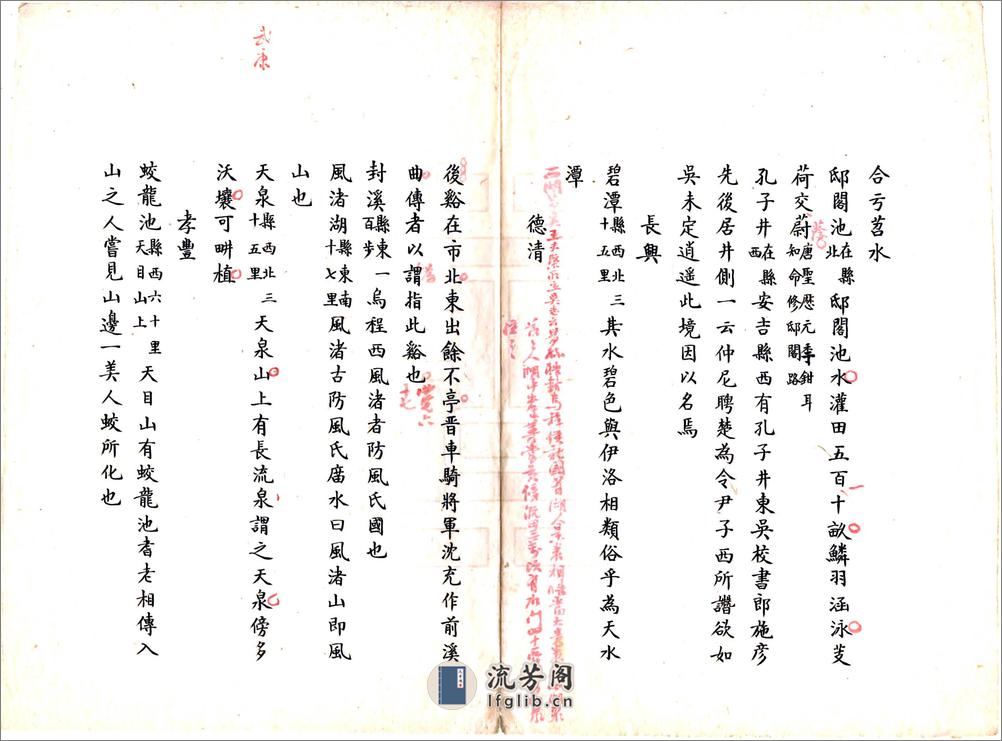 合亏苕水
邸閣池在縣北邸閣池水灌田五百十畝鱗羽涵泳芰
荷交蔚唐聖歷元季鉗耳知命修邸閣路
孔子井在縣西安吉縣西有孔子井東吳校書郎施彥
先後居井側一云仲尼聘楚為令尹子西所譖欲如
吳未定逍遥此境因以名焉
長興
碧潭縣西北三十五里其水碧色與伊洛相類俗乎為天水
潭
德清
後谿在市北東出餘不亭晋車騎將軍沈充作前溪
曲傳者以謂指此谿也
封溪縣東一百步烏程西風渚者防風氏國也
風渚湖縣東南十七里風渚古防風氏廣水曰風渚山即風
山也
天泉縣西北三十五里天泉山上有長流泉謂之天泉傍多
沃壤可畊植
孝豐
蛟龍池縣西六十里天目山上天目山有蛟龍池耆老相傳入
山之人嘗見山邊一美人蛟所化也
武康
流芳阁
lfglib.cn